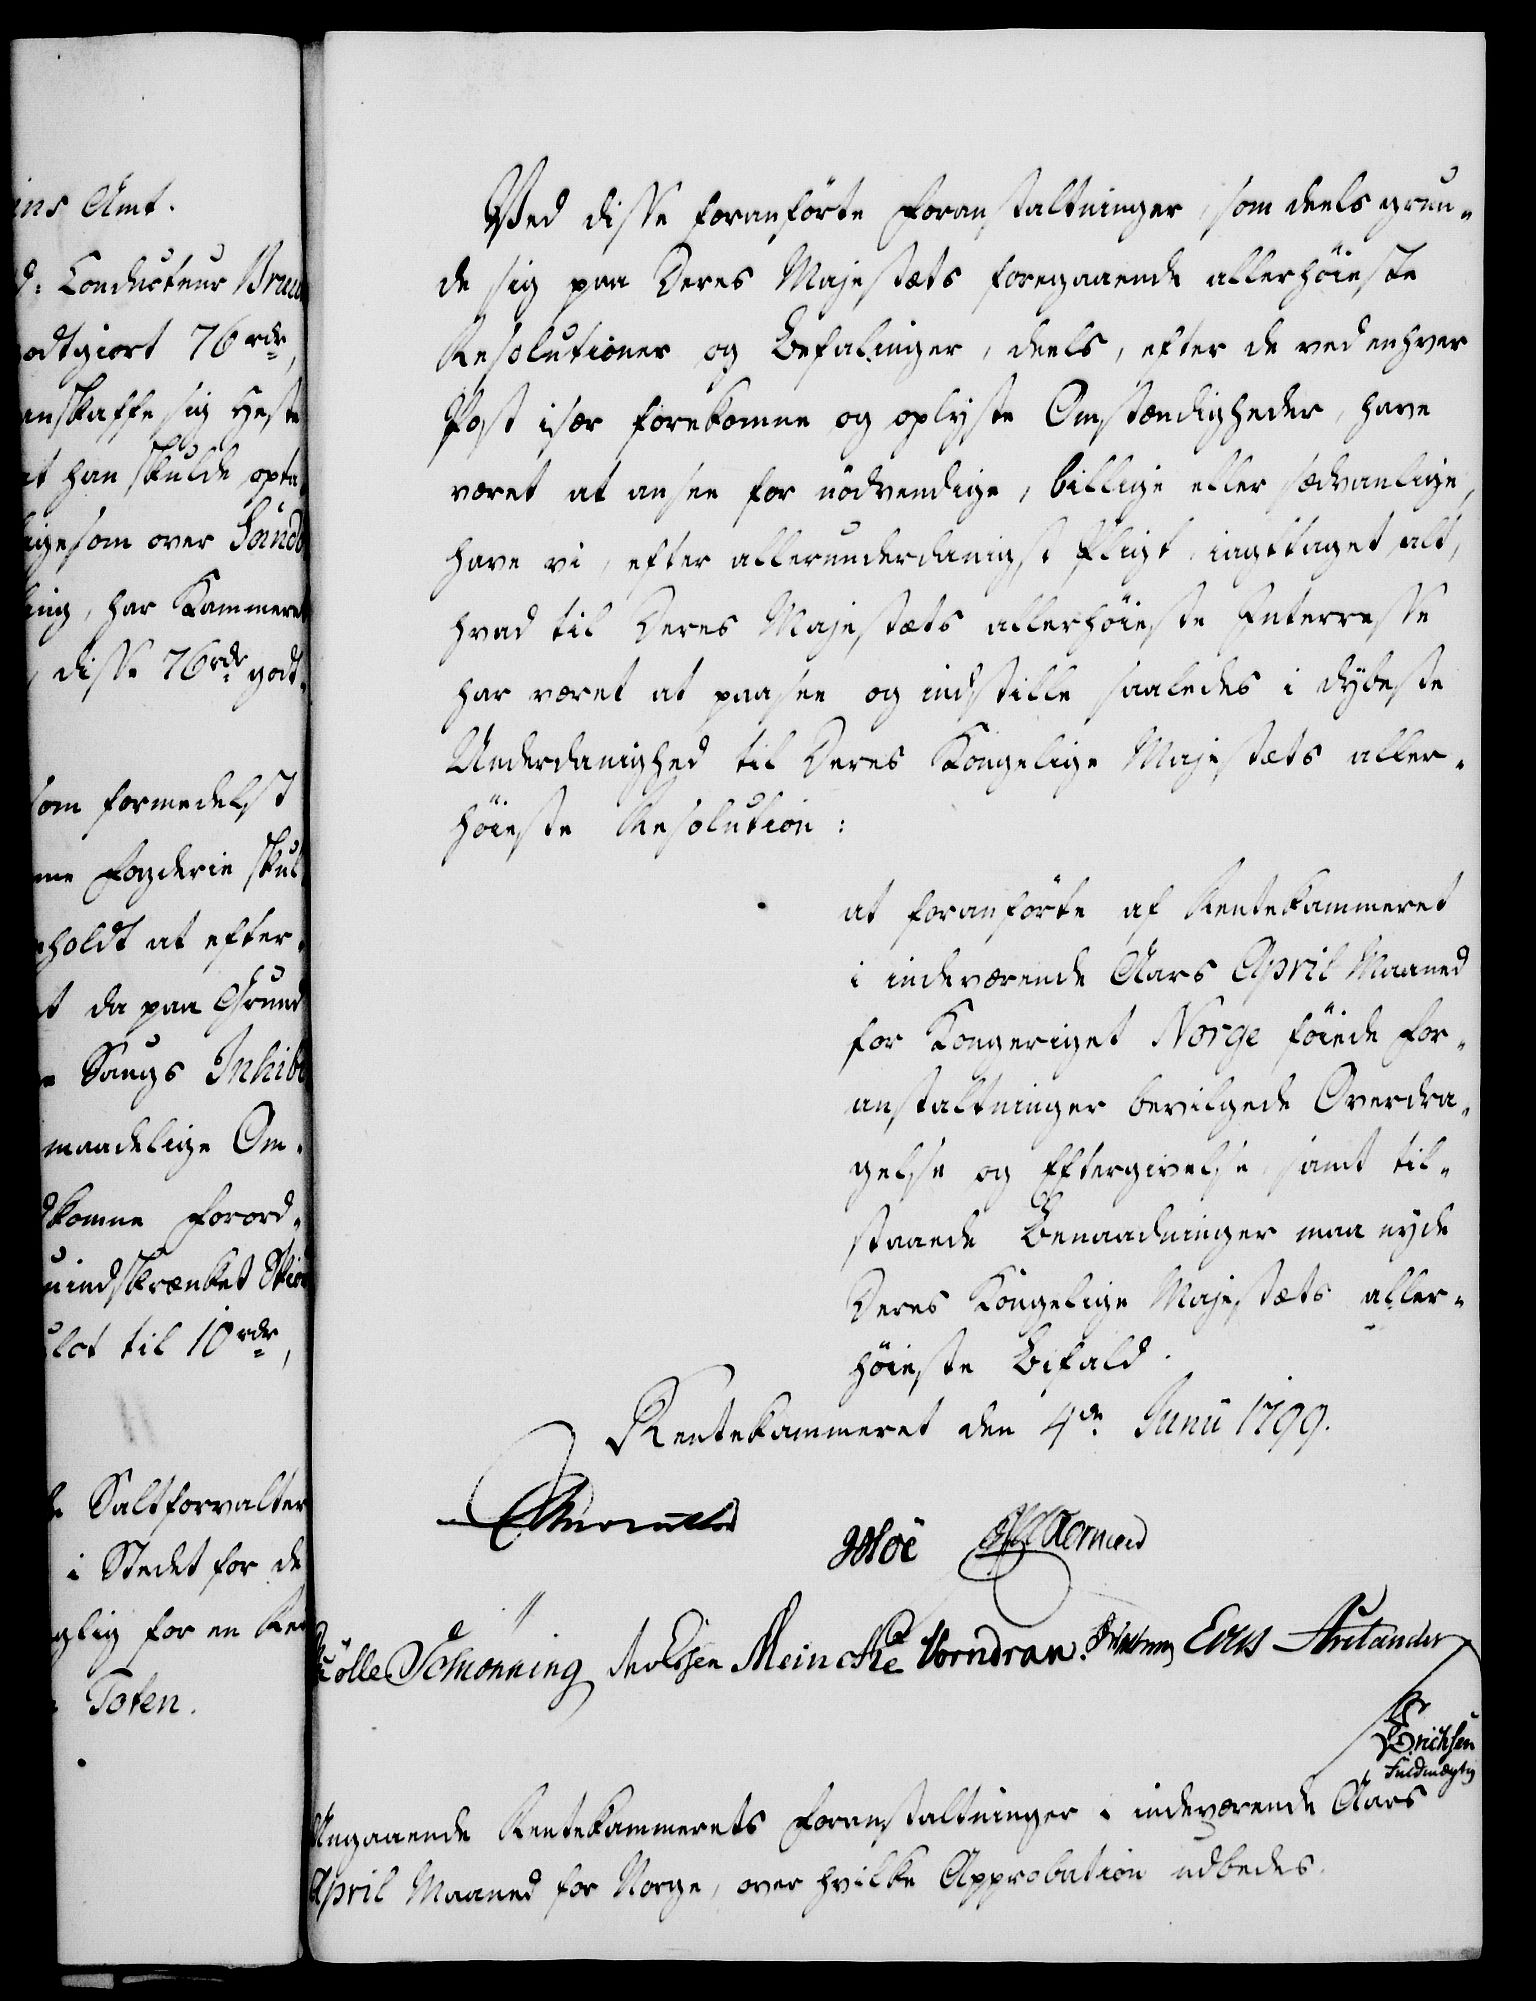 ins Amt.
d: Conducteur Bruu
godtgiort 76 rdr,
anskaffe sig Heste
at han skulde opta
ligesom over Sand
ling, har Kammeret
, disse 76 rdr godt„
som formedelst
me Fogderie skul
holdt at efter„
t da paa Grund
Saugs Inhibe
maadelige Om„
dkomne Forord„
uindskrænket Skiø
lot til 10 rdr,
Saltforvalter
i Stedet for de
gtig for en Re
Toten.
Ved disse foranförte Foranstaltninger, som deels grun„
de sig paa Deres Majestæts foregaaende allerhöieste
Resolutioner og Befalinger, deels, efter de ved enhver
Post især forekomne og oplyste Omstændigheder, have
været at ansee for nödvendige, billige eller sædvanlige,
have vi, efter allerunderdanigst Pligt, iagttaget alt,
hvad til Deres Majestæts allerhöieste Interresse
har været at paasee og indstille saaledes i dybeste
Underdanighed til Deres Kongelige Majestæts aller„
höieste Resolution:
at foranförte af Rentekammeret
i indeværende Aars April Maaned
for Kongeriget Norge föiede For„
anstaltninger bevilgede Overdra„
gelse og Eftergivelse, samt til„
staaede Benaadninger maa nyde
Deres Kongelige Majestæts aller„
höieste Bifald.
Rentekammeret den 4de Junii 1799.
Hoë
Kölle Schönning Meincke Vorndran. Eeus Aretander
Erichsen
Fuldmægtig
Angaaende Rentekammerets Foranstaltninger i indeværende Aars
April Maaned for Norge, over hvilke Approbation udbedes.